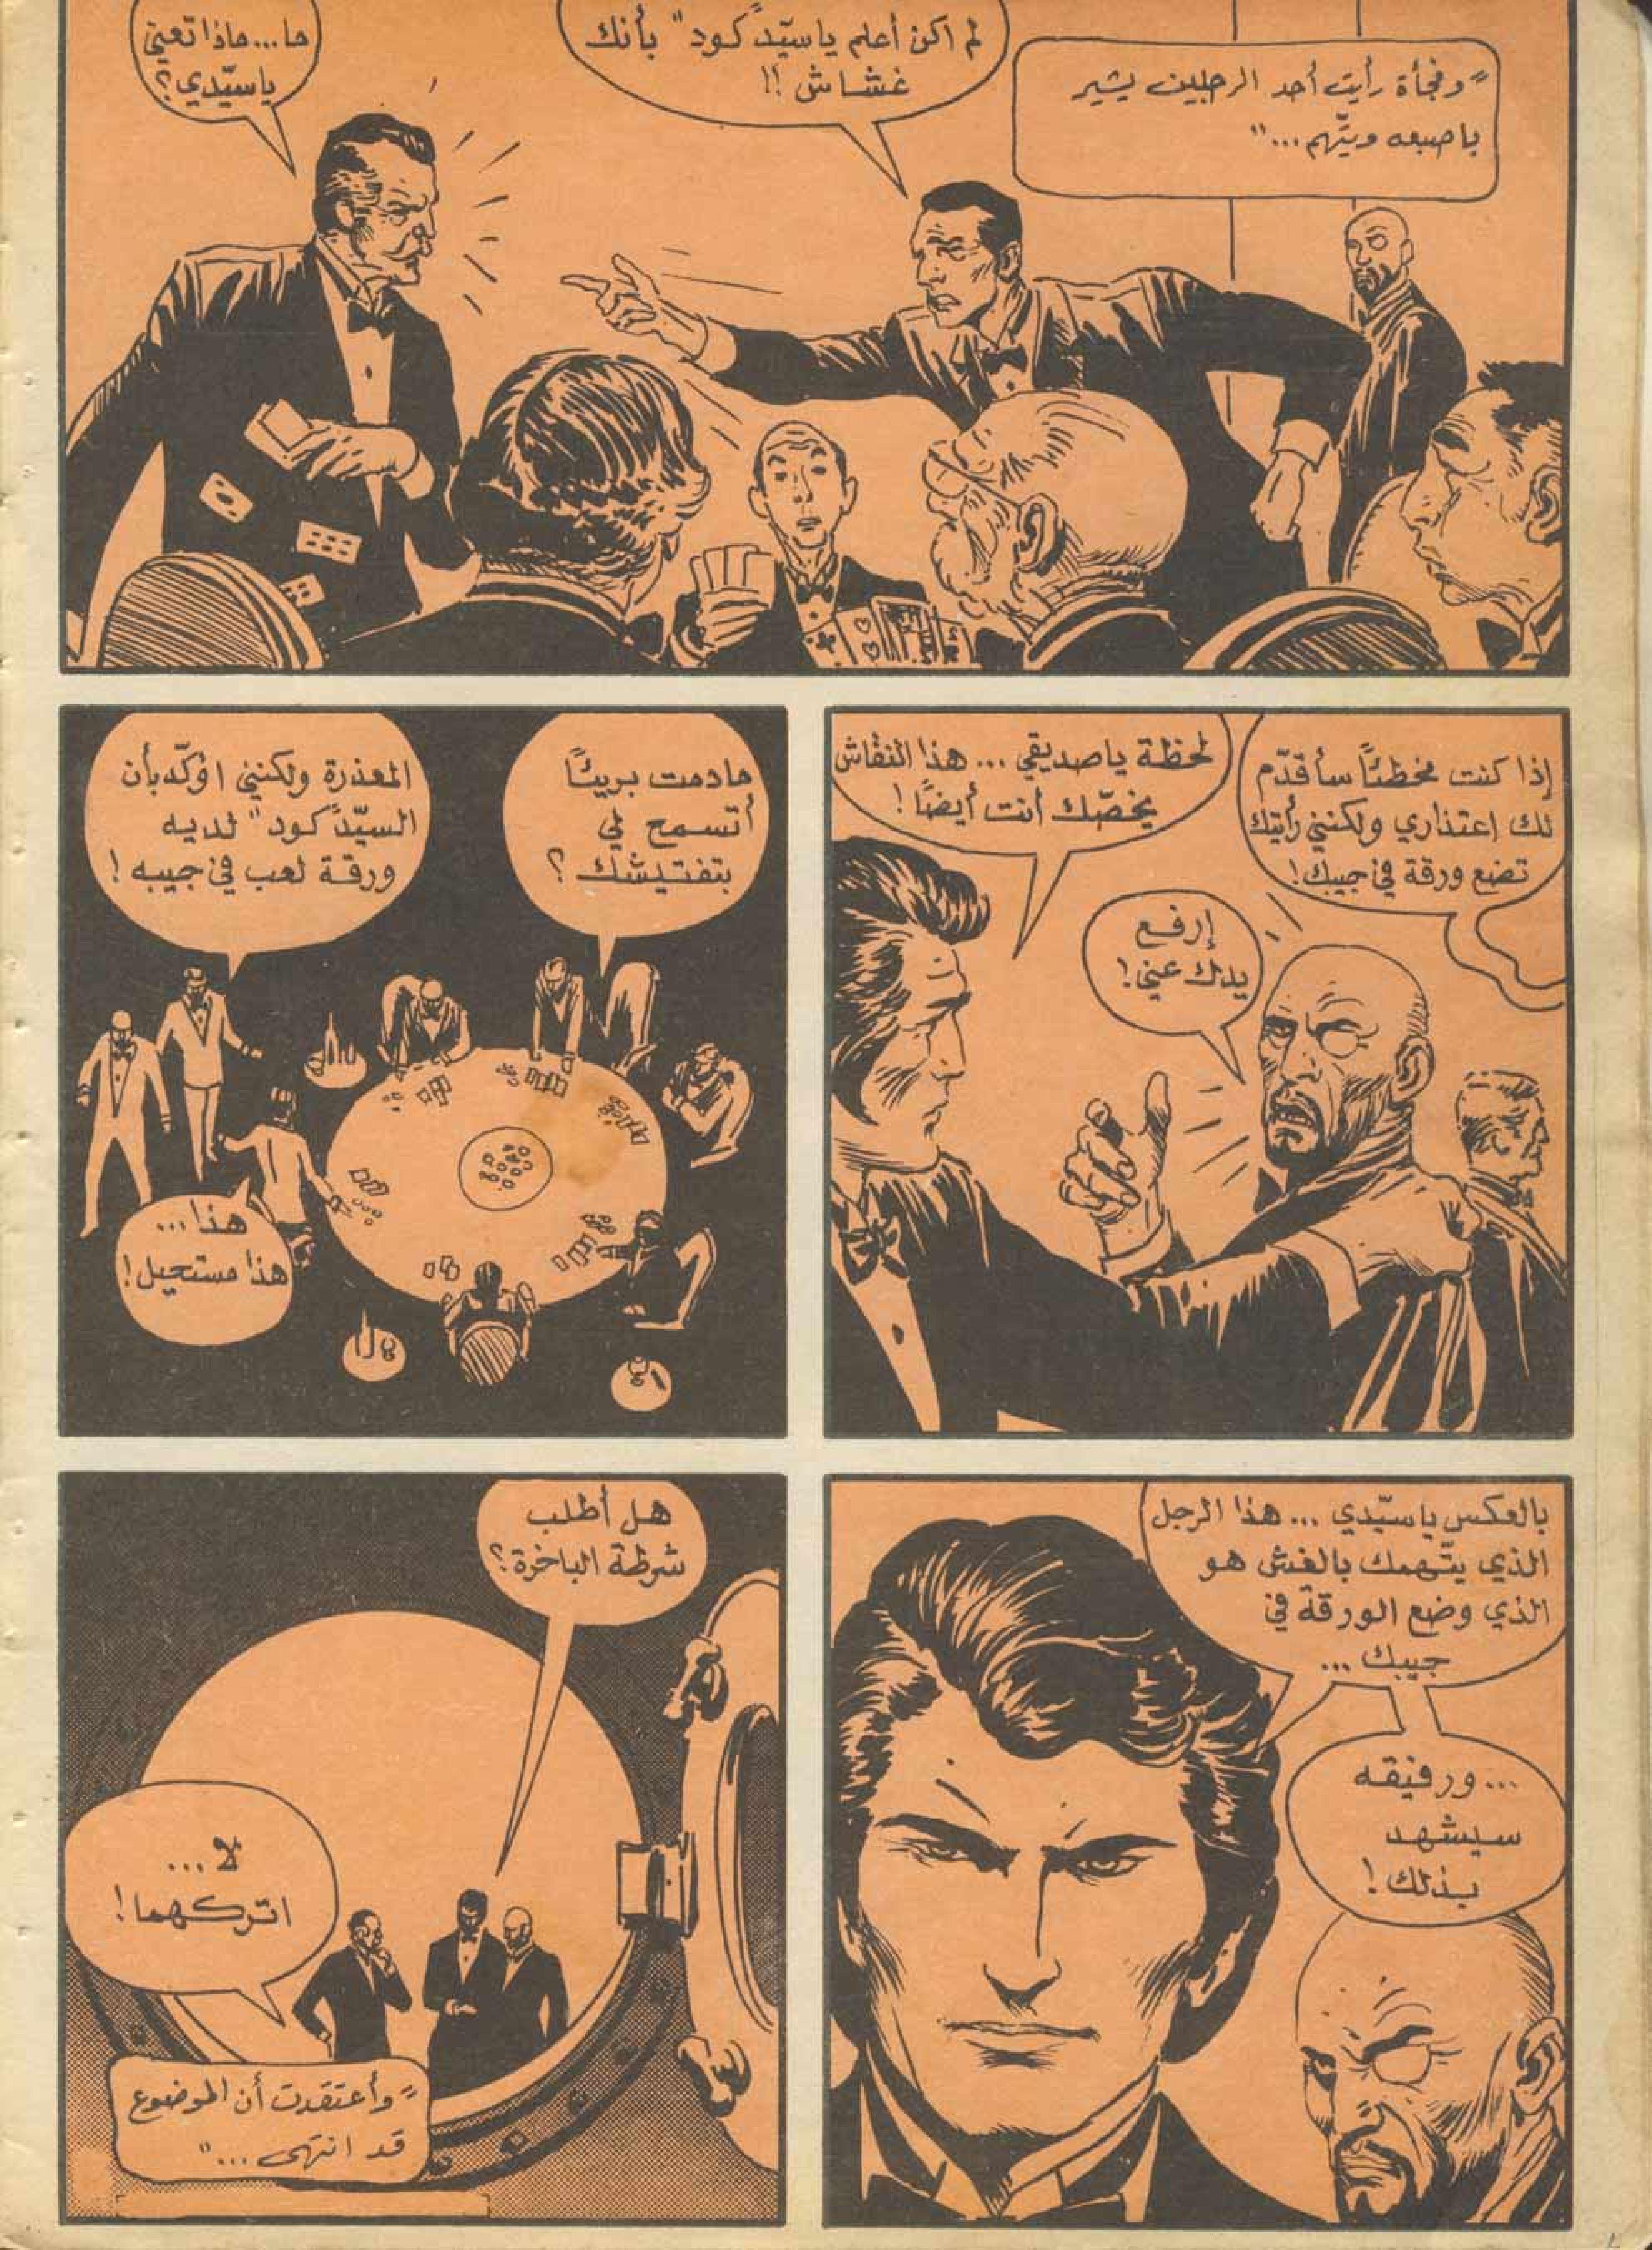 "وفجأة رأيت أحد الرجلين يشير
باصبعه ويتّهم..."
لم اكن أعلم ياسيّد "كود" بأنك
غشاش !!
ما...ماذا تعني
ياسيّدي؟
إذا كنت مخطئاً سأقدّم
لك إعتذاري ولكنني رأيتك
تضع ورقة في جيبك!
إرفع
يدك عني!
لحظة ياصديقي ... هذا النقاش
يخصّك أنت أيضاً!
مادمت بريئاً
أتسمح لي
بتفتيشك ؟
المعذرة ولكنني اؤكّد بأن
السيّد "كود" لديه
ورقة لعب في جيبه !
هذا ...
هذا مستحيل!
بالعكس ياسيّدي ... هذا الرجل
الذي يتّهمك بالغش هو
الذي وضع الورقة في
جيبك ...
...ورفيقه
سيشهد
بذلك !
هل أطلب
شرطة الباخرة؟
لا ...
اتركهما!
"وأعتقدت أن الموضوع
قد انتهى ..."